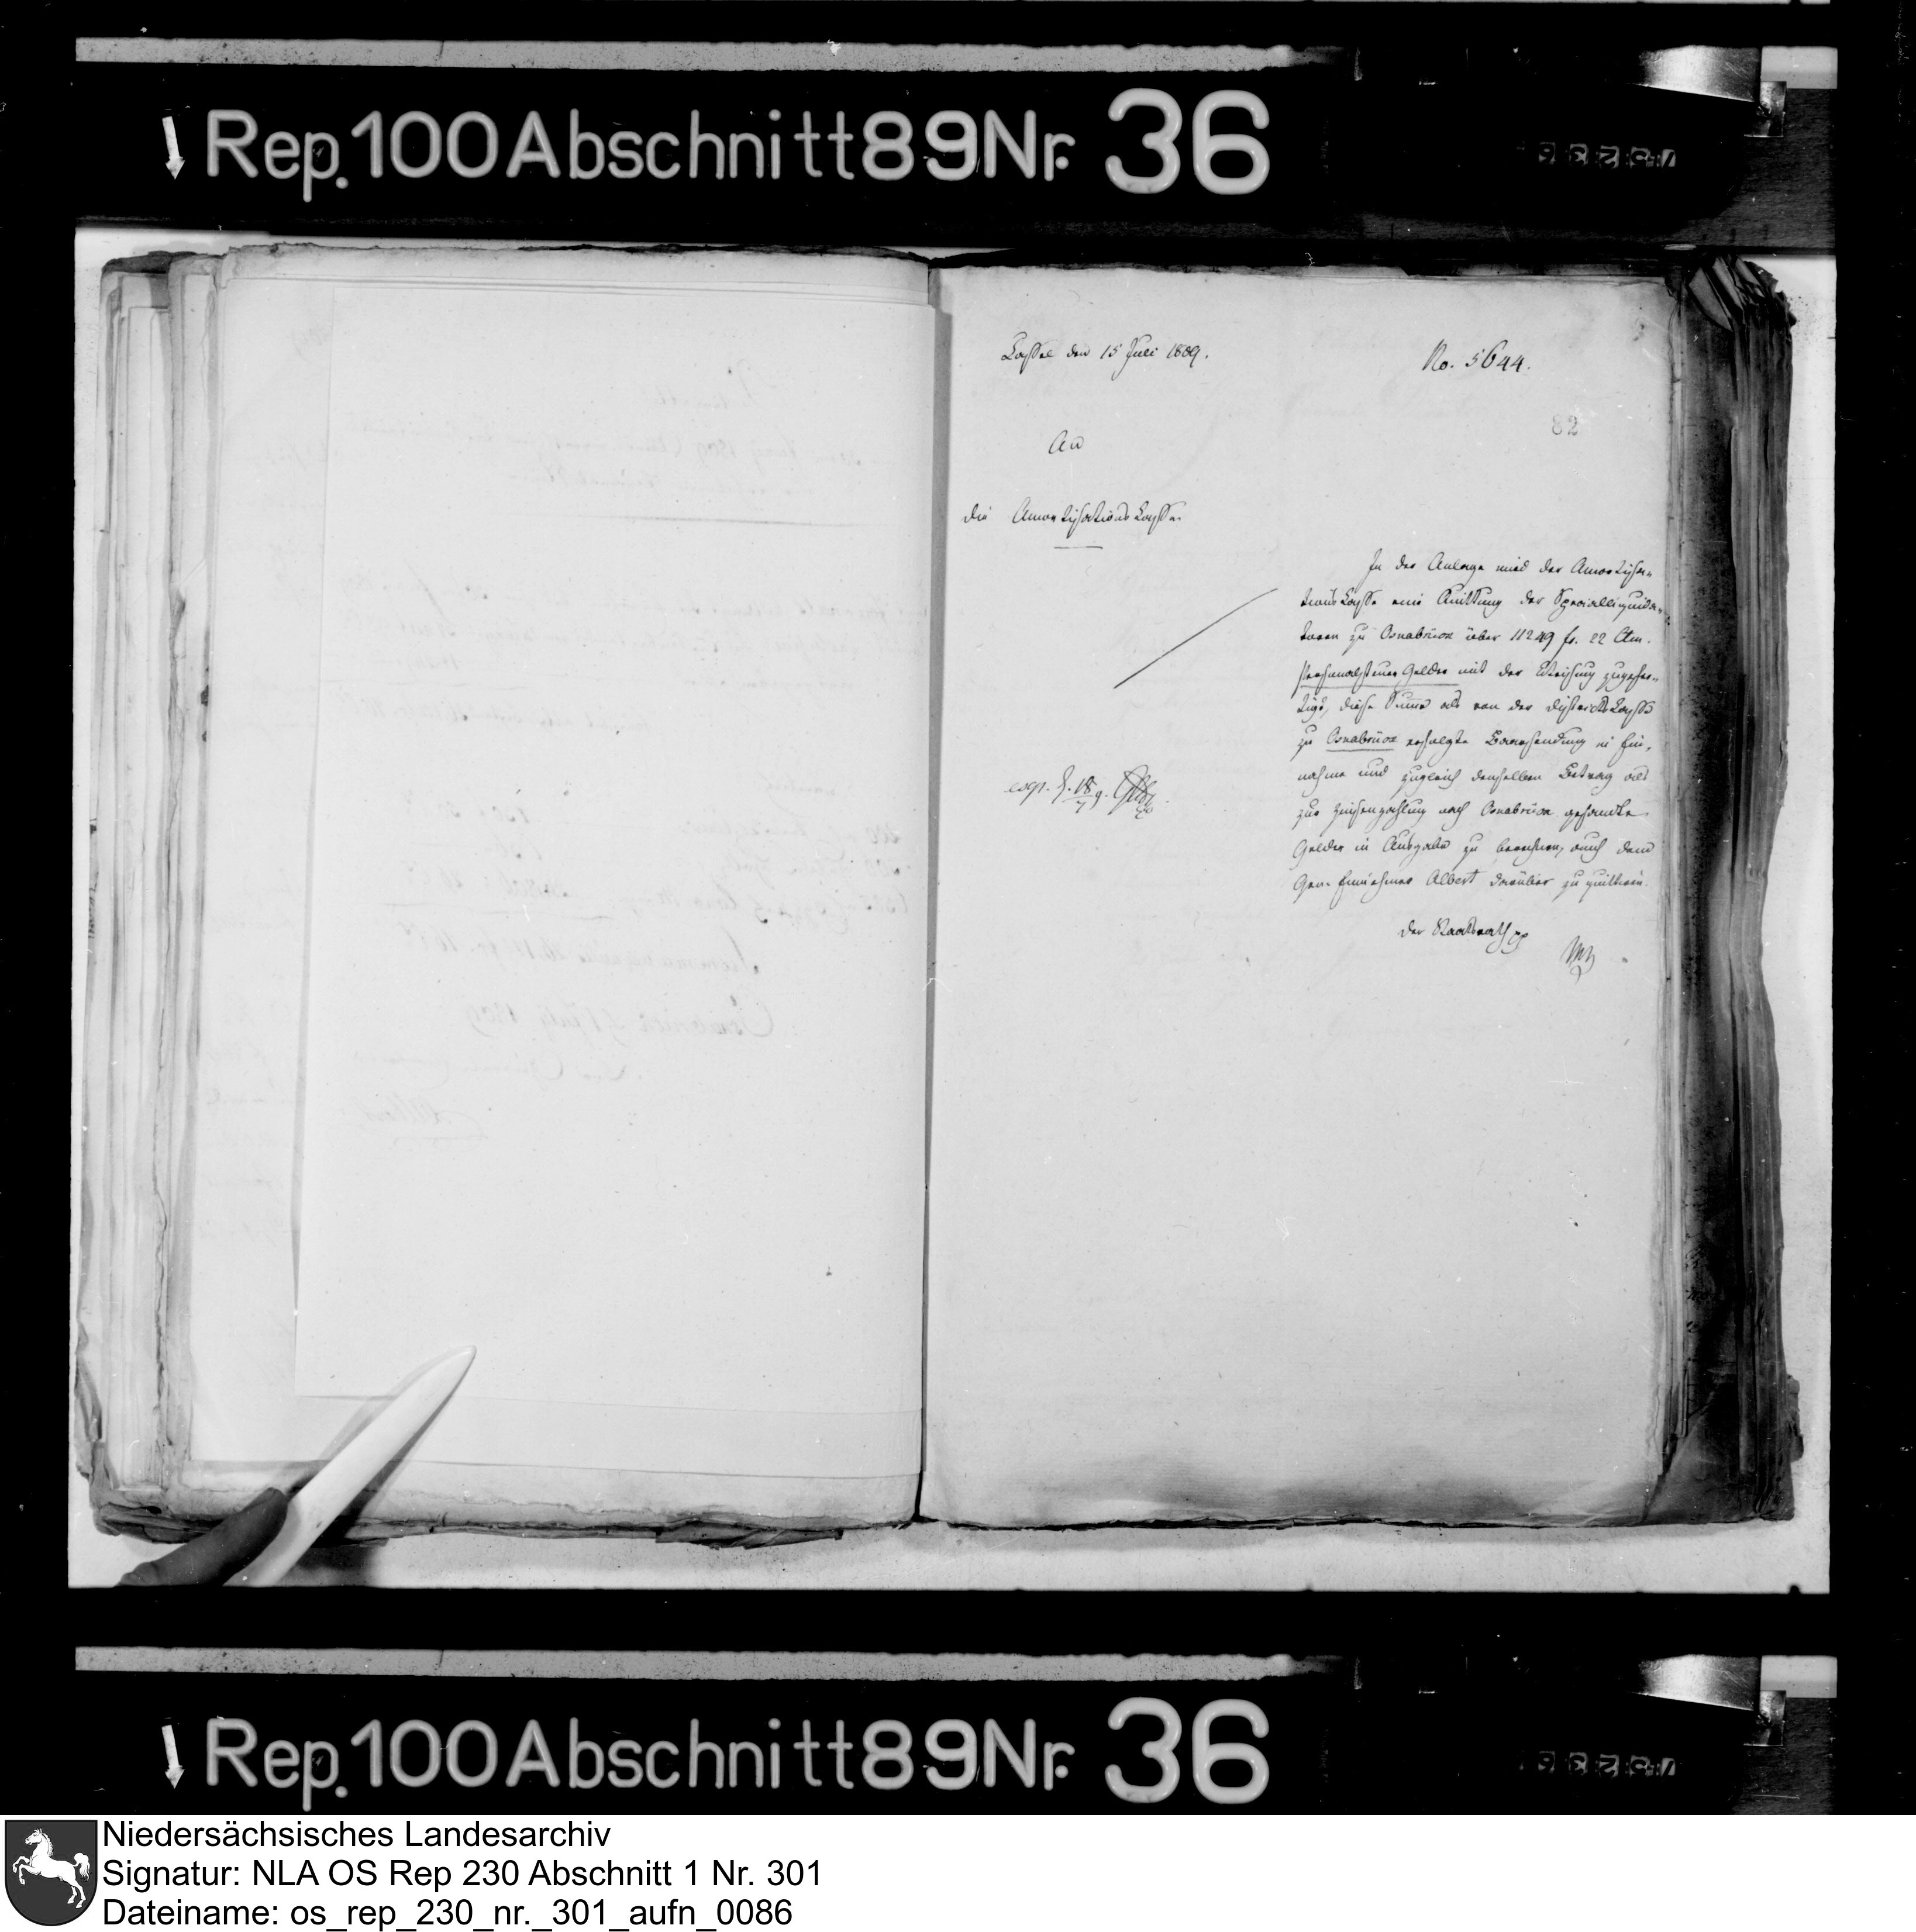 Rep. 100 Abschnitt 89 Nr. 36
Cassel den 15 Juli 1809.
No. 5644.
82
An
die Amortisations Casse
In der Anlage wird der Amortisa-
tions Casse eine Quittung der Specialliquida-
toren zu Osnabrück über 11249 fr. 22 Ctm.
Personalsteuer Gelder mit der Weisung zugefer-
tigt, diese Summe als von der Districts Casse
zu Osnabrück erfolgte Baarsendung in Ein-
nahme und zugleich denselben Betrag als
zur Zinsenzahlung nach Osnabrück gesandte
Gelder in Ausgabe zu berechnen, auch dem
Gen. Einnehmer Albert darüber zu quittiren.
Der Staatsrath
exp. 18/7 9.
Rep. 100 Abschnitt 89 Nr. 36
Niedersächsisches Landesarchiv
Signatur: NLA OS Rep 230 Abschnitt 1 Nr. 301
Dateiname: os_rep_230_nr._301_aufn_0086